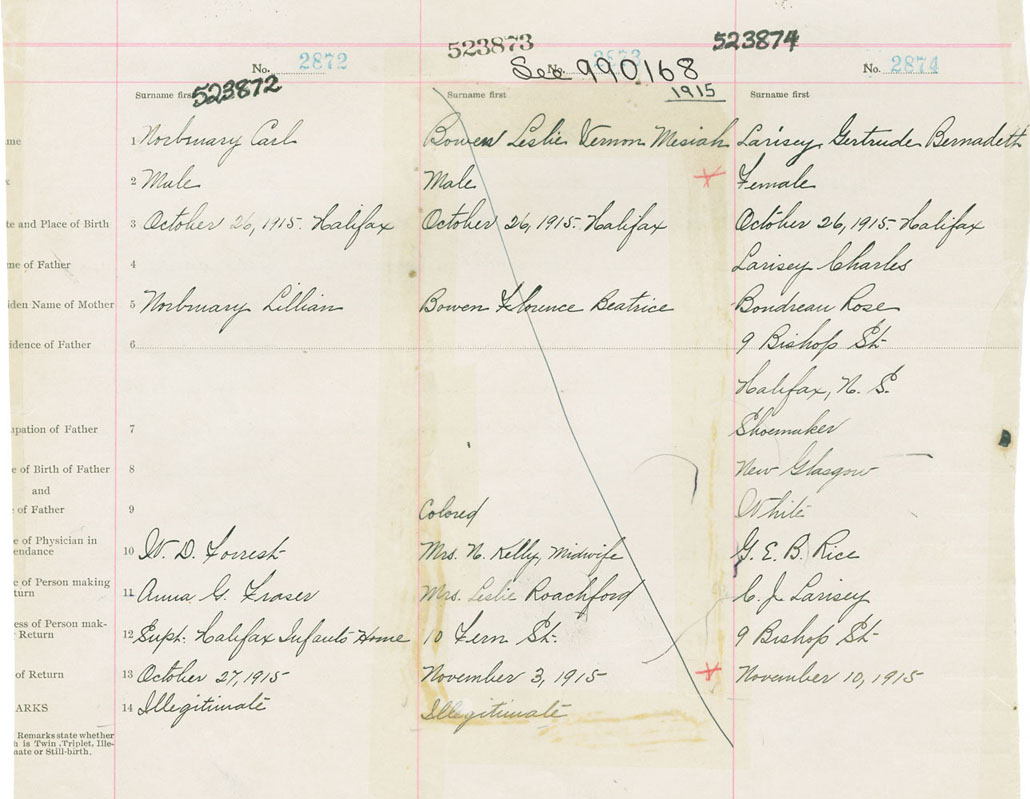 523873 523874
No. 2872 See No. 2873 990168 No. 2874
Surname first 523872 Surname first 1915 Surname first
me 1 Norbmary Carl Bowen Leslie Vernon Mesiah Larisey Gertrude Bernadett
x 2 Male Male Female
te and Place of Birth 3 October 26, 1915. Halifax October 26, 1915. Halifax October 26, 1915. Halifax
me of Father 4 Larisey Charles
iden Name of Mother 5 Norbmary Lillian Bowen Florence Beatrice Bondreau Rose
idence of Father 6 9 Bishop St.
Halifax, N. S.
upation of Father 7 Shoemaker
e of Birth of Father 8 New Glasgow
and
e of Father 9 Colored White
e of Physician in
endance 10 W. D. Forrest Mrs. N. Kelly, Midwife G. E. B. Rice
e of Person making
turn 11 Anna G. Fraser Mrs. Leslie Roachford C. J. Larisey
ess of Person mak-
Return 12 Supt. Halifax Infants Home 10 Fern St. 9 Bishop St.
of Return 13 October 27, 1915 November 3, 1915 November 10, 1915
ARKS 14 Illegitimate Illegitimate
Remarks state whether
h is Twin, Triplet, Ille-
mate or Still-birth.